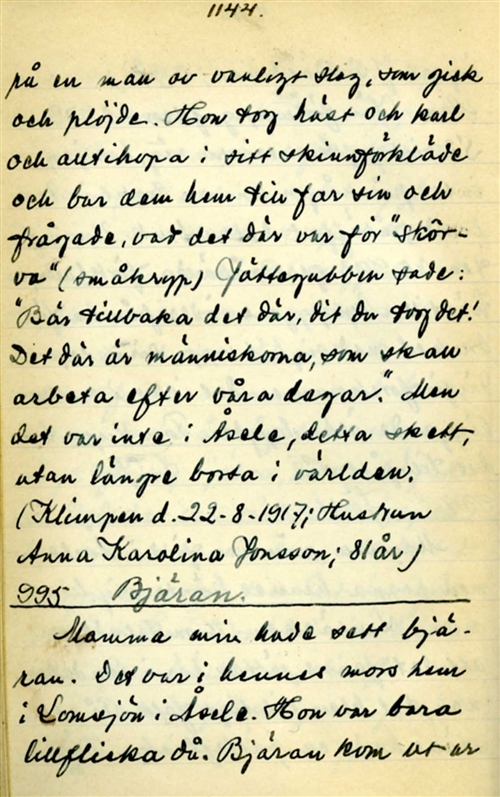 1144.
på en man av vanligt slag, som gick
och plöjde. Hon tog häst och karl
och alltihopa i sitt skinnförkläde
och bar dem hem till far sin och
frågade, vad det där var för "skör-
va" (småkryp) Jättegubben sade:
"Bär tillbaka det där, dit du tog det!
Det där är människorna, som skall
arbeta efter våra dagar." Men
det var inte i Åsele, detta skett,
utan längre borta i världen.
(Klimpen d. 22-8-1917; Hustrun
Anna Karolina Jonsson; 81 år)
995 Bjäran.
Mamma min hade sett bjä-
ran. Det var i hennes mors hem
i Lomsjön i Åsele. Hon var bara
lillflicka då. Bjäran kom ut ur